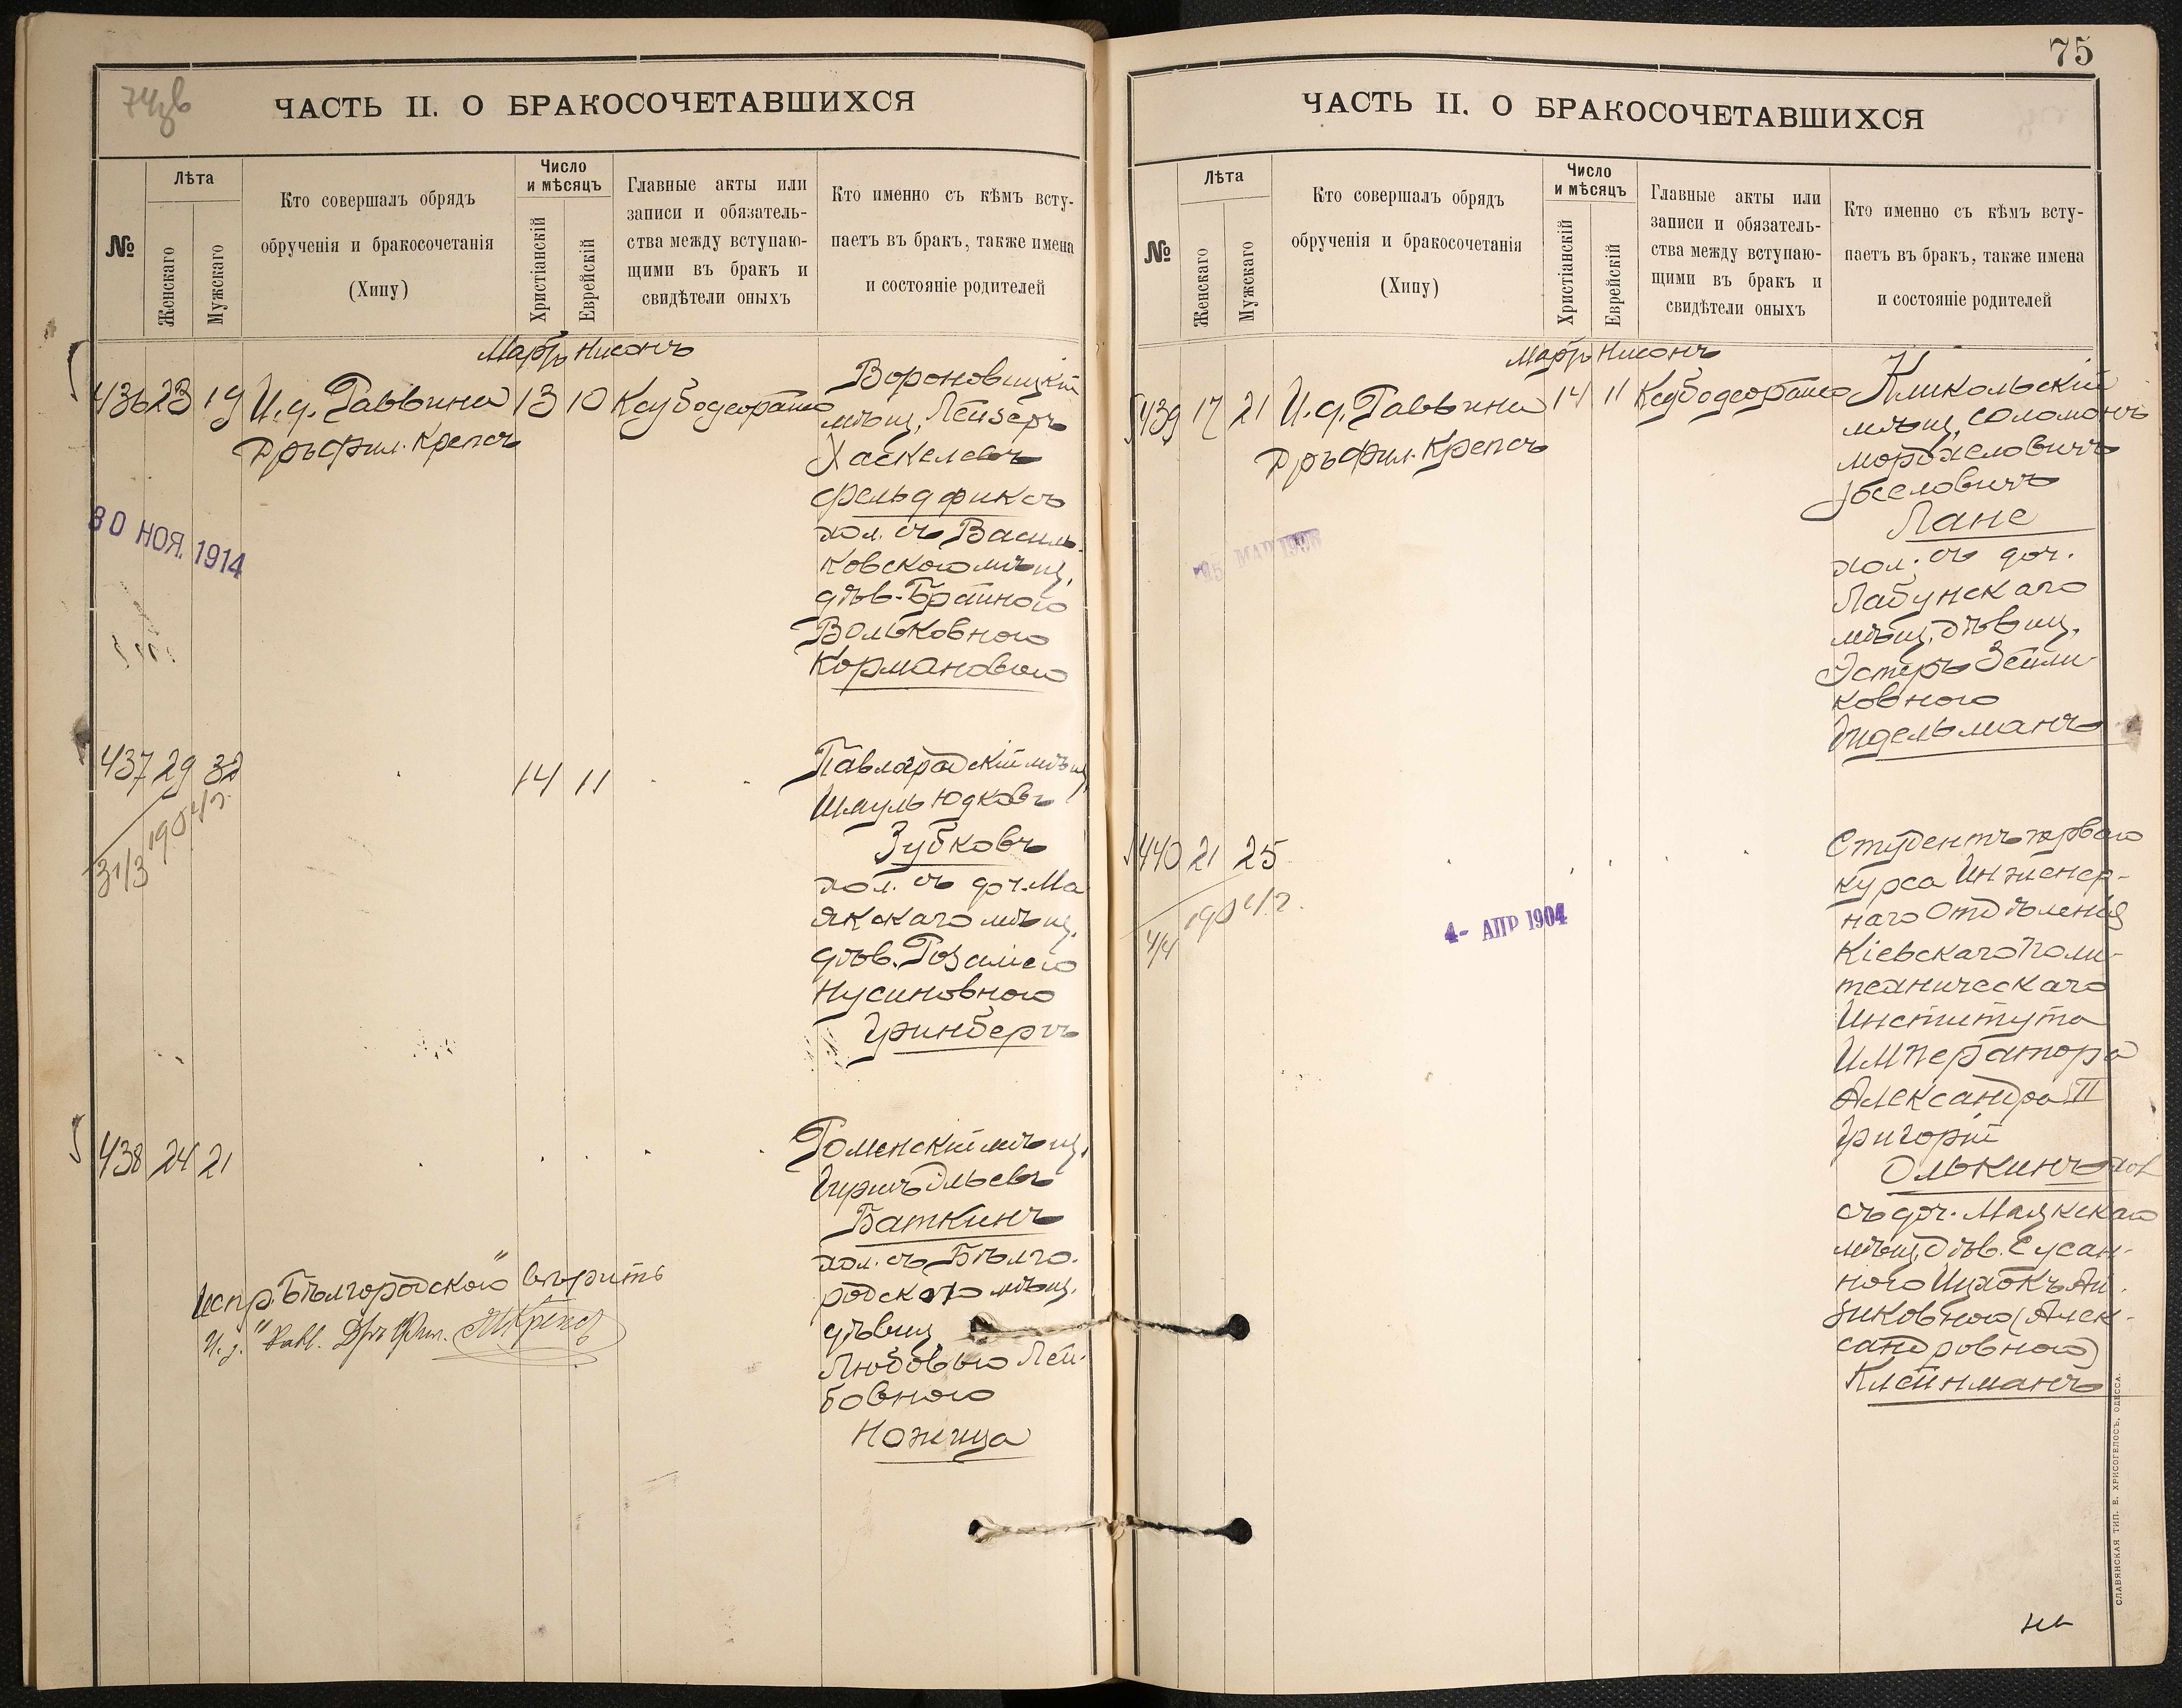 74об
ЧАСТЬ II. О БРАКОСОЧЕТАВШИХСЯ
№
Лѣта
Женскаго
Мужскаго
Кто совершалъ обрядъ
обрученія и бракосочетанія
(Хипу)
Число
и мѣсяцъ
Христіанскій
Еврейскій
Главные акты или
записи и обязатель-
ства между вступаю-
щими въ бракъ и
свидѣтели оныхъ
Кто именно съ кѣмъ всту-
паетъ въ бракъ, также имена
и состояніе родителей
Мартъ Нисонъ
436 23 19 И.д. Раввина 13 10 Ксубодеорашо
Др ъ фил. Крепсъ
30 НОЯ. 1914
Вороновицкій
мѣщ. Лейзеръ
Хаскелевъ
Фельдфиксъ
хол. съ Василь-
ковскою мѣщ.
дѣв. Брайною
Вольковною
Кормановою
437 29 32 14 11
31/3 1904 г.
Павлоградскій мѣщ.
Шмуль Юдковъ
Зубковъ
хол. съ доч. Ма
якскаго мѣщ.
дѣв. Розаліею
Нусиновною
Гринбергъ
438 24 21
Роменскій мѣщ.
Гиршъ Эльевъ
Баткинъ
хол. съ Бѣлго-
родскою мѣщ.
дѣвиц.
Любовью Лей-
бовною
Ножица
Испр. "Бѣлгородскою" вѣрить
И.д. Равв. Дръ Фил. Крепсъ
75
ЧАСТЬ II. О БРАКОСОЧЕТАВШИХСЯ
№
Лѣта
Женскаго
Мужскаго
Кто совершалъ обрядъ
обрученія и бракосочетанія
(Хипу)
Число
и мѣсяцъ
Христіанскій
Еврейскій
Главные акты или
записи и обязатель-
ства между вступаю-
щими въ бракъ и
свидѣтели оныхъ
Кто именно съ кѣмъ всту-
паетъ въ бракъ, также имена
и состояніе родителей
Мартъ Нисонъ
439 17 21 И.д. Раввина 14 11 Ксубодеорашо
Др ъ фил. Крепсъ
Никольскій
мѣщ. Соломонъ
Мордхеловичъ
Іоселовичъ
Лане
хол. съ доч.
Лабунскаго
мѣщ. дѣвиц.
Эстеръ Зейли-
ковною
Эйдельманъ
440 21 25
4/4 1904 г.
4- АПР 1904
Студентъ перваго
курса Инженер-
наго Отдѣленія
Кіевскаго Поли-
техническаго
Института
Императора
Александра II
Григорій
Олькинъ хол.
съ доч. Маякскаго
мѣщ. дѣв. Сусан-
ною Ай-
зиковною (Алек-
сандровною)
Клейнманъ
СЛАВЯНСКАЯ ТИП. Е. ХРИСОГЕЛОСЪ, ОДЕССА.